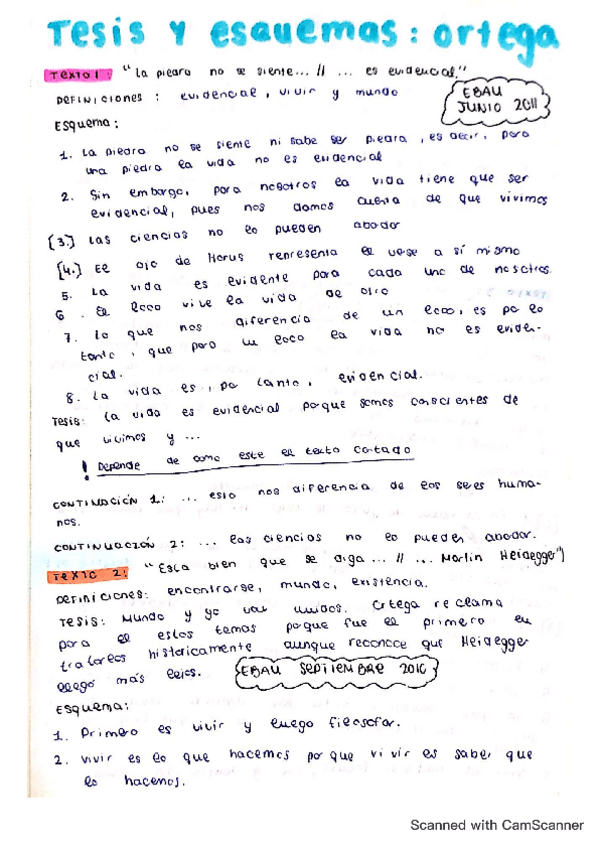 Tesis y esquemas: ortega
TEXTO 1: "La piedra no se siente... // ... es evidencial."
DEFINICIONES: evidencial, vivir y mundo
EBAU JUNIO 2011
ESQUEMA:
1. La piedra no se siente ni sabe ser piedra, es decir, para
una piedra la vida no es evidencial
2. Sin embargo, para nosotros la vida tiene que ser
evidencial, pues nos damos cuenta de que vivimos
[3.] Las ciencias no lo pueden abodar
[4.] El ojo de Horus representa el verse a sí mismo
5. La vida es evidente para cada uno de nosotros.
6. El loco vive la vida de otro
7. Lo que nos diferencia de un loco, es por lo
tanto, que para un loco la vida no es eviden-
cial.
8. La vida es, por tanto, evidencial.
Tesis: La vida es evidencial porque somos conscientes de
que vivimos y ...
! Depende de como este el texto cortado
CONTINUACIÓN 1: ... esto nos diferencia de los seres huma-
nos.
CONTINUACIÓN 2: ... las ciencias no lo pueden abodar.
TEXTO 2: "Esta bien que se diga... // ... Martin Heidegger")
Definiciones: encontrarse, mundo, existencia.
Tesis: Mundo y yo van unidos. Ortega reclama
para él estos temas porque fue el primero en
tratarlos históricamente aunque reconoce que Heidegger
llegó más lejos.
EBAU SEPTIEMBRE 2010
ESQUEMA:
1. Primero es vivir y luego filosofar.
2. Vivir es lo que hacemos porque vivir es saber que
lo hacemos.
Scanned with CamScanner